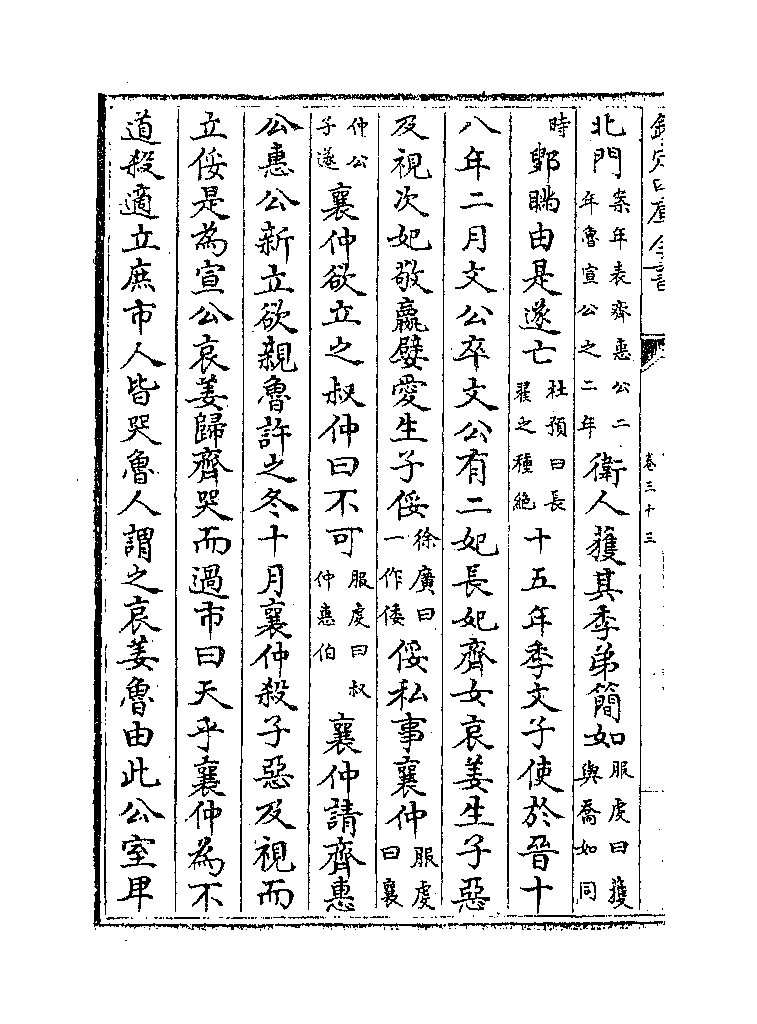 欽定四庫全書 卷三十三
北門案年表齊惠公二年魯宣公之二年衛人獲其季弟簡如服虔曰獲與喬如同
時鄋瞞由是遂亡杜預曰長翟之種絶十五年季文子使於晉十
八年二月文公卒文公有二妃長妃齊女哀姜生子惡
及視次妃敬嬴嬖愛生子俀徐廣曰一作倭俀私事襄仲服虔曰襄
仲公子遂襄仲欲立之叔仲曰不可服虔曰叔仲惠伯襄仲請齊惠
公惠公新立欲親魯許之冬十月襄仲殺子惡及視而
立俀是為宣公哀姜歸齊哭而過市曰天乎襄仲為不
道殺適立庶市人皆哭魯人謂之哀姜魯由此公室卑